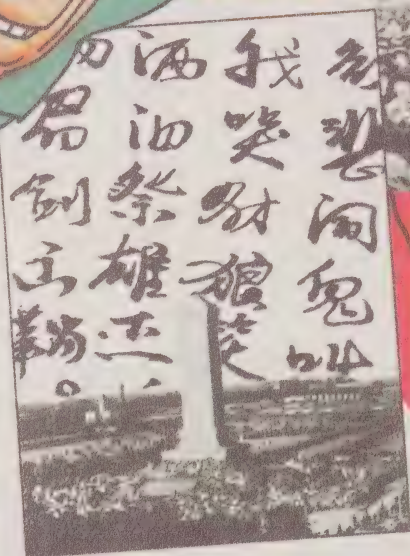 欲悲闻鬼叫
我哭豺狼笑
洒泪祭雄杰，
扬眉剑出鞘。